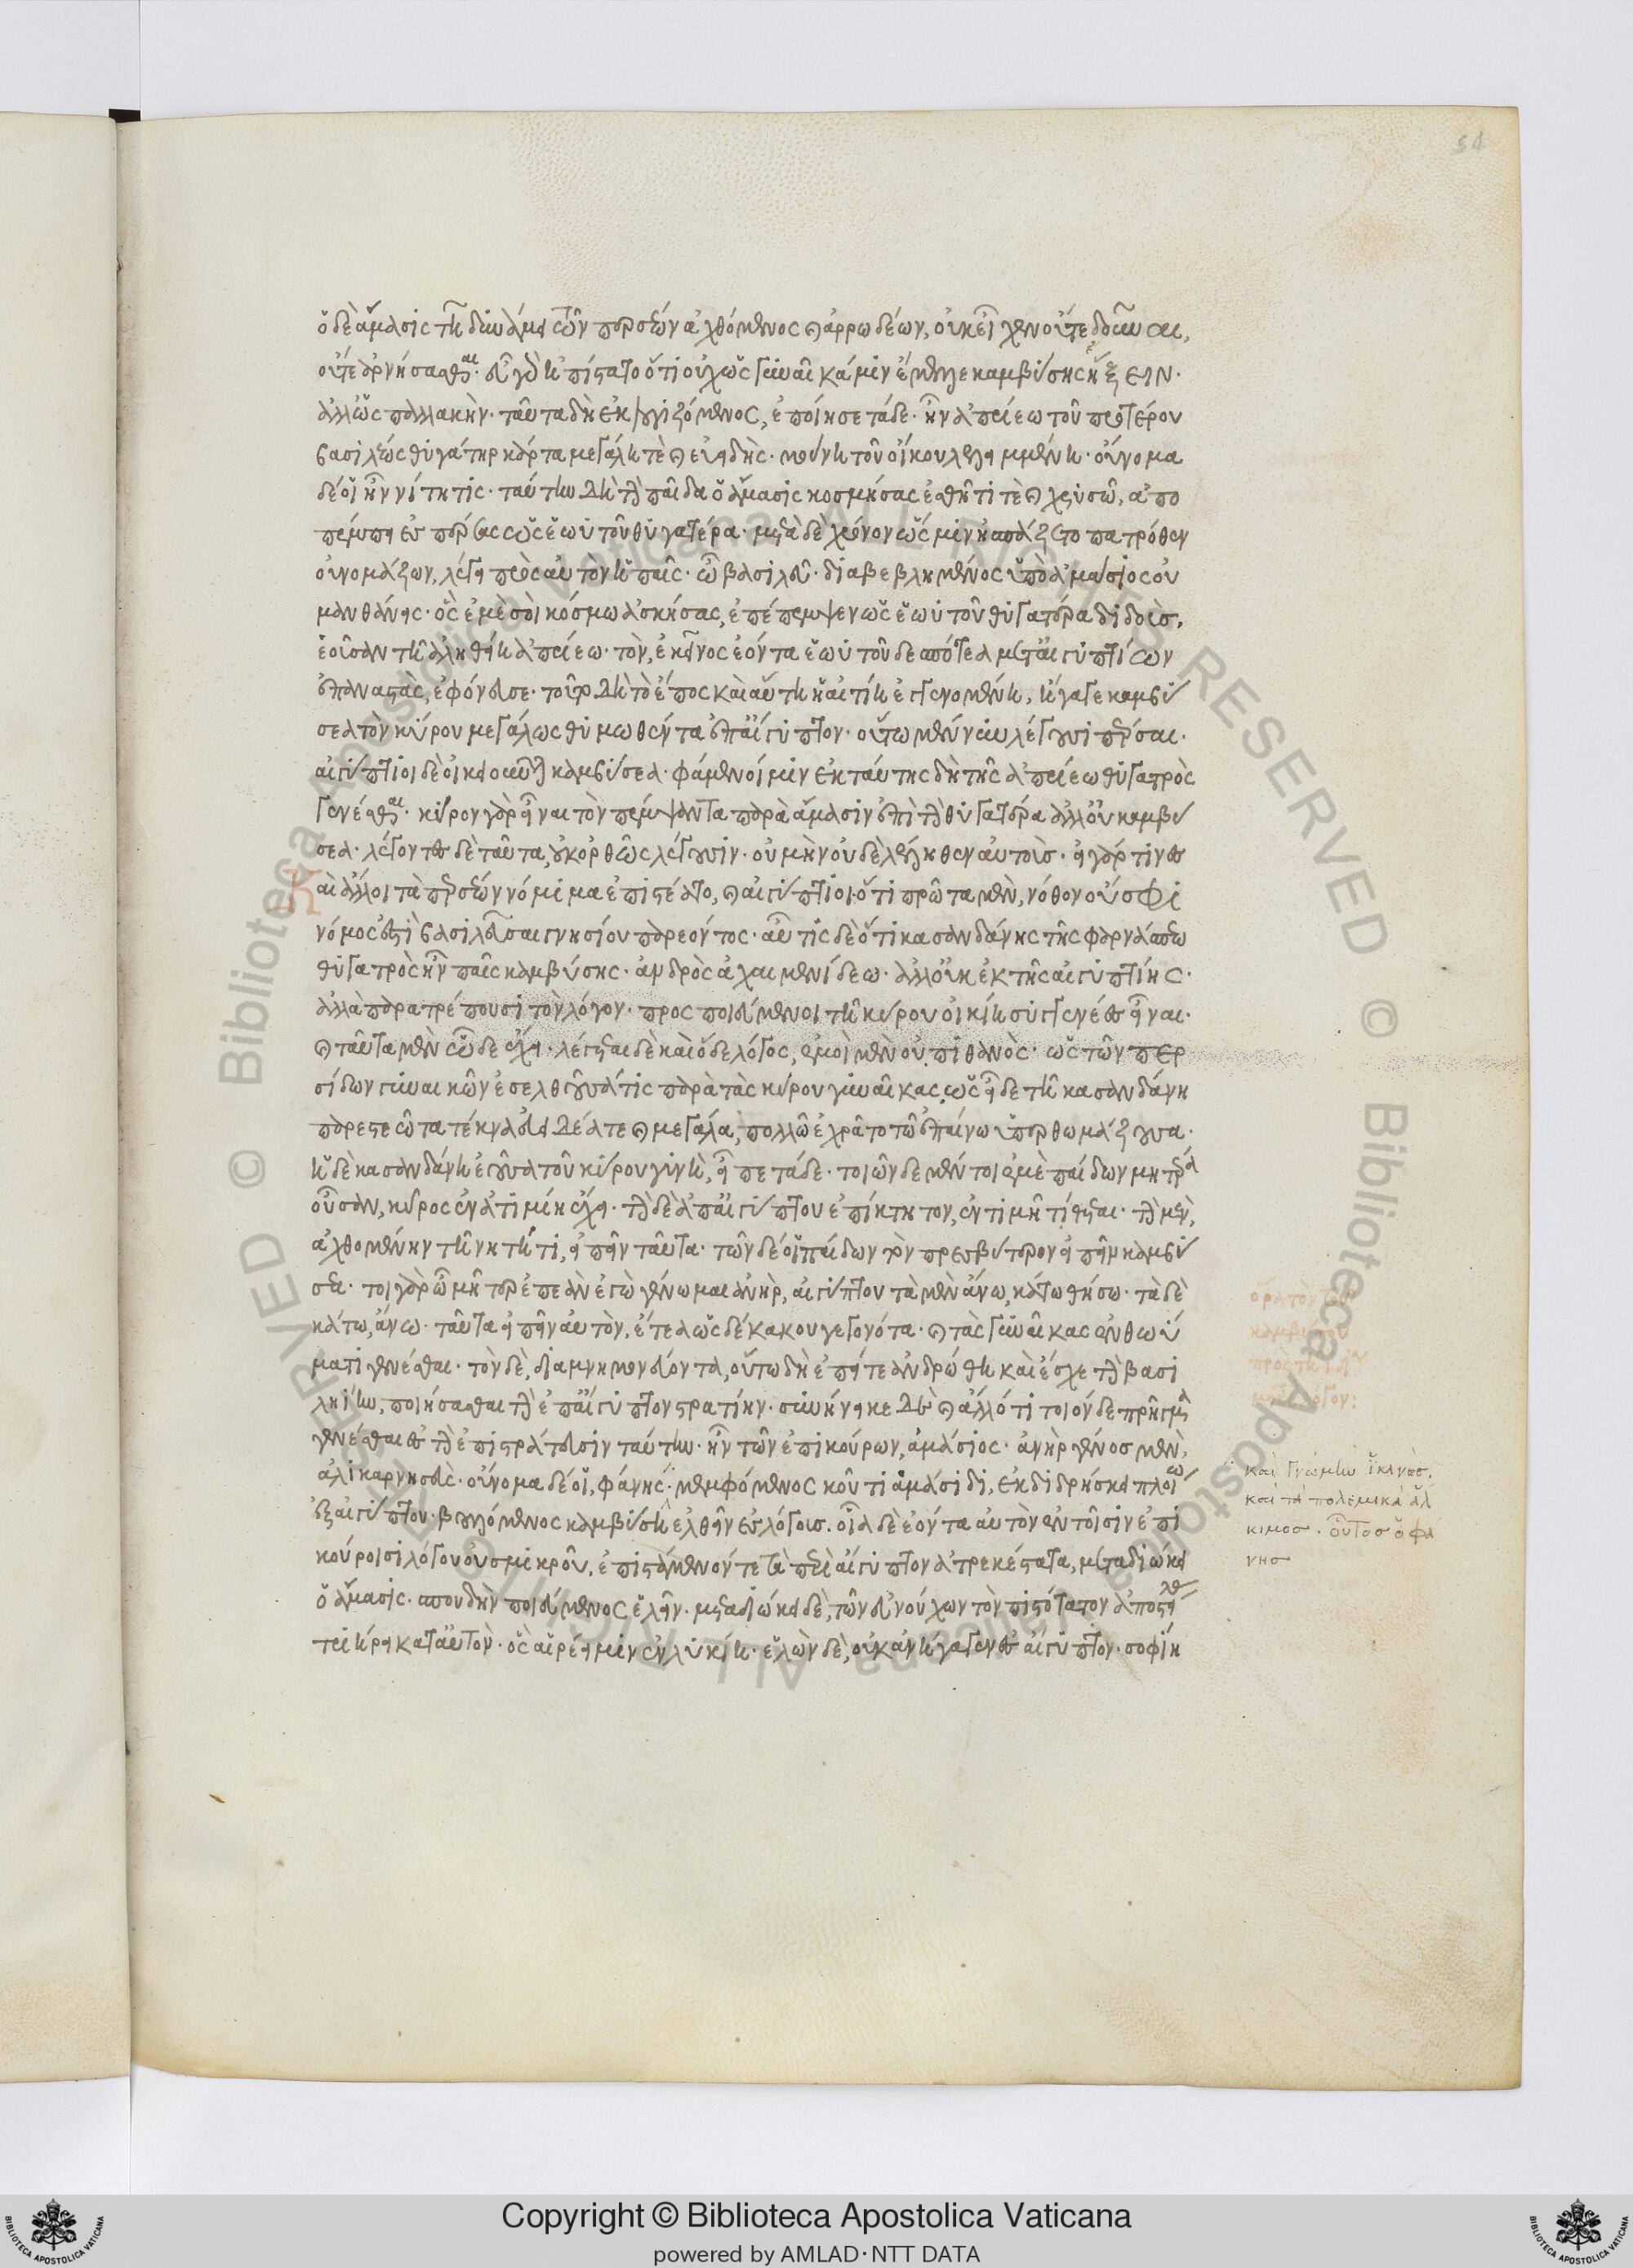 ὁ δὲ ἄμασις τῆ δυνάμει τῶν περσέων ἀχθόμενος καὶ ἀρρωδέων, οὐκ εἶχεν οὔτε δοῦναι,
οὔτε ἀρνήσασθαι· εὖ γὰρ ἠπίστατο ὅτι οὐχ ὡς γυναῖκά μιν ἔμελλε καμβύσης ἕξειν·
ἀλλ' ὡς παλλακὴν· ταῦτα δὴ ἐκλογιζόμενος, ἐποίησε τάδε· ἦν ἀπρίεω τοῦ προτέρου
βασιλέως θυγάτηρ κάρτα μεγάλη τὲ καὶ εὐειδὴς· μούνη τοῦ οἴκου λελειμμένη· οὔνομα
δέ οἱ ἦν νίτητις· ταύτην δὴ τὴν παῖδα ὁ ἄμασις κοσμήσας ἐσθῆτί τὲ καὶ χρυσῶ, ἀπο
πέμπει ἐς πέρσας ὡς ἑωυτοῦ θυγατέρα· μετὰ δὲ χρόνον ὥς μιν ἠσπάζετο πατρόθεν
οὐνομάζων, λέγει πρὸς αὐτὸν ἡ παῖς· ὦ βασιλεῦ· διαβεβλημένος ὑπὸ ἀμάσιος οὐ
μανθάνεις· ὃς ἐμὲ σοὶ κόσμω ἀσκήσας, ἀπέπεμψεν ὡς ἑωυτοῦ θυγατέρα διδοὺσ,
ἐοῦσαν τῆ ἀληθείη ἀπρίεω· τὸν, ἐκεῖνος ἐόντα ἑωυτοῦ δεσπότεα μετ' αἰγυπτίων
ἐπαναστὰς, ἐφόνευσε· τοῦτο δὴ τὸ ἔπος καὶ αὕτη ἡ αἰτίη ἐγγενομένη, ἤγαγε καμβύ
σεα τὸν κύρου μεγάλως θυμωθέντα ἐπ' αἴγυπτον· οὕτω μέν νυν λέγουσι πέρσαι·
αἰγύπτιοι δὲ οἰκειοῦνται καμβύσεα· φάμενοί μιν ἐκ ταύτης δὴ τῆς ἀπρίεω θυγατρὸς
γενέσθαι· κῦρον γὰρ εἶναι τὸν πέμψαντα παρὰ ἄμασιν ἐπὶ τὴν θυγατέρα ἀλλ' οὐ καμβύ
σεα· λέγοντες δὲ ταῦτα, οὐκ ὀρθῶς λέγουσιν· οὐ μὴν οὐδὲ λέληθεν αὐτοὺσ· εἰ γάρ τινες
Καὶ ἄλλοι τὰ περσέων νόμιμα ἐπιστέαται, καὶ αἰγύπτιοι ὅτι πρῶτα μὲν, νόθον οὔ σφι
νόμος ἐστὶ βασιλεῦσαι γνησίου παρεόντος· αὖτις δὲ ὅτι κασανδάνης τῆς φαρνάσπεω
θυγατρὸς ἦν παῖς καμβύσης· ἀνδρὸς ἀχαιμενίδεω· ἀλλ' οὐκ ἐκ τῆς αἰγυπτίης·
ἀλλὰ παρατρέπουσι τὸν λόγον· προσποιεύμενοι τῆ κύρου οἰκίη συγγενέες εἶναι·
καὶ ταῦτα μὲν ὧδε ἔχει· λέγεται δὲ καὶ ὅδε λόγος, ἐμοὶ μὲν οὐ πιθανὸς· ὡς τῶν περ
σίδων γυναικῶν ἐσελθοῦσά τις παρὰ τὰς κύρου γυναῖκας, ὡς εἶδε τῆ κασανδάνη
παρεστεῶτα τέκνα εὐειδέα τε καὶ μεγάλα, πολλῶ ἐχρᾶτο τῶ ἐπαίνω ὑπερθωμάζουσα·
ἡ δὲ κασανδάνη ἐοῦσα τοῦ κύρου γυνὴ, εἶπε τάδε· τοιῶνδε μέν τοι ἐμὲ παίδων μητέρα
οὖσαν, κῦρος ἐν ἀτιμίη ἔχει· τὴν δὲ ἀπ' αἰγύπτου ἐπίκτητον, ἐν τιμῆ τίθεται· τὴν μὲν,
ἀχθομένην τῆ νιτήτι, εἰπεῖν ταῦτα· τῶν δέ οἱ παίδων τὸν πρεσβύτερον εἰπεῖν καμβύ
σεα· τοιγὰρ ὦ μῆτερ ἐπεὰν ἐγὼ γένωμαι ἀνὴρ, αἰγύπτου τὰ μὲν ἄνω, κάτω θήσω· τὰ δὲ
κάτω, ἄνω· ταῦτα εἰπεῖν αὐτὸν, ἔτεα ὡς δέκα κου γεγονότα· καὶ τὰς γυναῖκας ἐν θωύ
ματι γενέσθαι· τὸν δὲ, διαμνημονεύοντα, οὕτω δὴ ἐπείτε ἀνδρώθη καὶ ἔσχε τὴν βασι
ληίην, ποιήσασθαι τὴν ἐπ' αἴγυπτον στρατίην· συνήνεικε δὲ καὶ ἄλλό τι τοιόνδε πρῆγμα
γενέσθαι ἐς τὴν ἐπιστράτευσιν ταύτην· ἦν τῶν ἐπικούρων, ἀμάσιος· ἀνὴρ γένοσ μὲν,
ἁλικαρνησεὺς· οὔνομα δέ οἱ, φάνης· μεμφόμενος κοῦ τι ἀμάσιδι, ἐκδιδρήσκει πλοίω
ἐξ αἰγύπτου· βουλόμενος καμβύση ἐλθεῖν ἐς λόγους· οἷα δὲ ἐόντα αὐτὸν ἐν τοῖσιν ἐπι
κούροισι λόγου οὐ σμικροῦ, ἐπιστάμενόν τε τὰ περὶ αἴγυπτον ἀτρεκέστατα, μεταδιώκει
ὁ ἄμασις· σπουδὴν ποιεύμενος ἑλεῖν· μεταδιώκει δὲ, τῶν εὐνούχων τὸν πιστότατον ἀποστείλας
τριήρει κατ' αὐτὸν· ὃς αἱρέει μιν ἐν λυκίη· ἑλὼν δὲ, οὐκ ἀνήγαγεν ἐς αἴγυπτον· σοφίη
καὶ γνώμην ἱκανὸσ,
καὶ τὰ πολεμικὰ ἄλ
κιμοσ· οὗτοσ ὁ φά
νησ